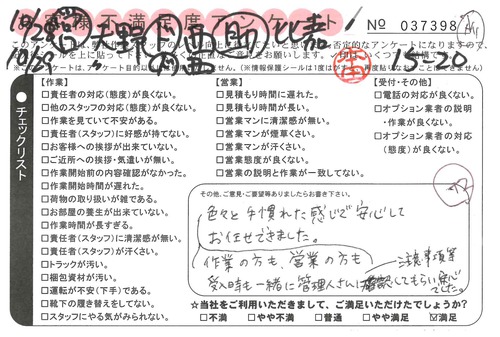 お客様不満足度アンケート
№ 037398
15-20
チェックリスト
【作業】
□責任者の対応(態度)が良くない。
□他のスタッフの対応(態度)が良くない。
□作業を見ていて不安がある。
□責任者(スタッフ)に好感が持てない。
□お客様への挨拶が出来ていない。
□ご近所への挨拶・気遣いが無い。
□作業開始前の内容確認がなかった。
□作業開始時間が遅れた。
□荷物の取り扱いが雑である。
□お部屋の養生が出来ていない。
□作業時間が長すぎる。
□責任者(スタッフ)に清潔感が無い。
□責任者(スタッフ)が汚い。
□トラックが汚い。
□梱包資材が汚い。
□運転が不安(下手)である。
□靴下の履き替えをしてない。
□スタッフにやる気がみられない。
【営業】
□見積もり時間に遅れた。
□見積もり時間が長い。
□営業マンに清潔感が無い。
□営業マンが煙草くさい。
□営業マンが汗くさい。
□営業態度が良くない。
□営業の説明と作業が一致してない。
【受付・その他】
□電話の対応が良くない。
□オプション業者の説明
・作業が良くない。
□オプション業者の対応
(態度)が良くない。
その他、ご意見・ご要望等ありましたらお書き下さい。
色々と手慣れた感じで安心して
お任せできました。
作業の方も、営業の方も
注意事項等
受入時も一緒に管理人さんに確認してもらい安心
でした。
☆当社をご利用いただきまして、ご満足いただけたでしょうか?
□不満 □やや不満 □普通 □やや満足 ☑満足